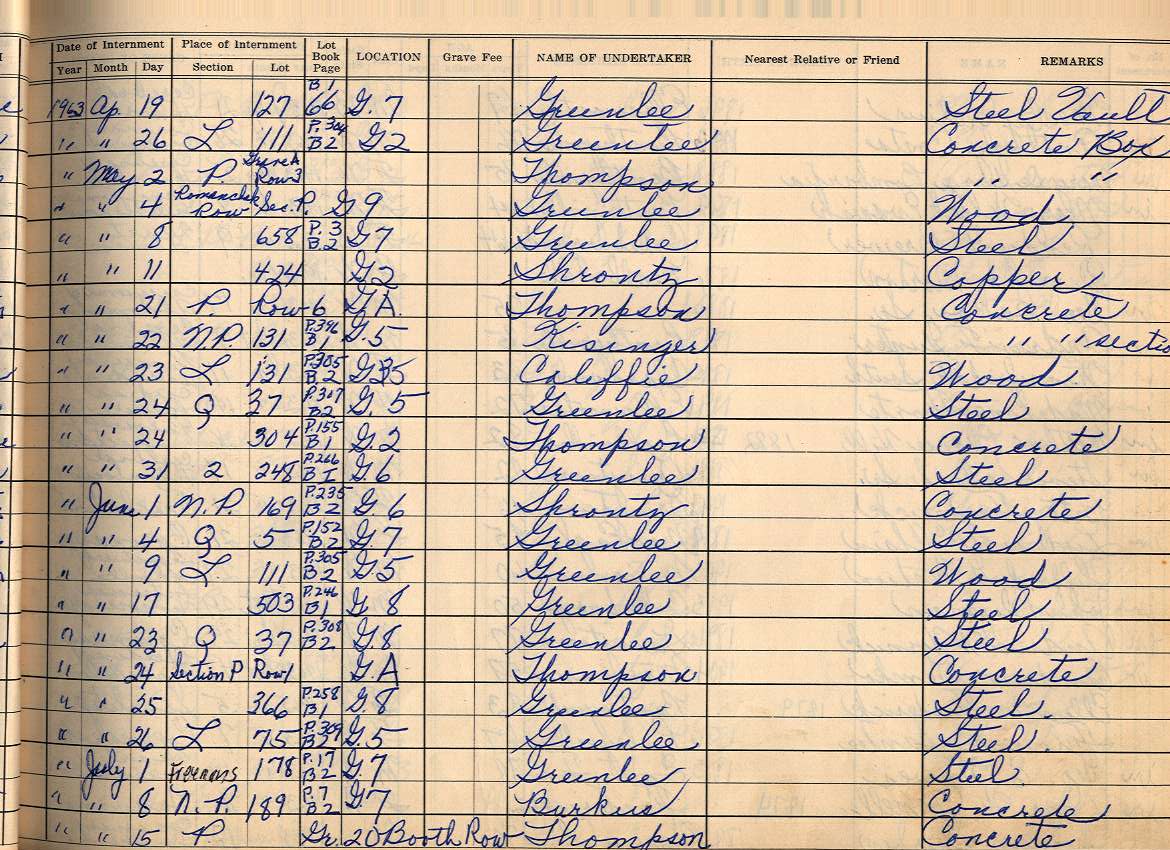 Date of Internment Place of Internment Lot Book Page LOCATION Grave Fee NAME OF UNDERTAKER Nearest Relative or Friend REMARKS
Year Month Day Section Lot
1963 Ap. 19 127 B1 66 G.7 Greenlee Steel Vault
" " 26 L 111 P.304 B2 G2 Greenlee Concrete Box
" May 2 P Grave A Row 3 Thompson " "
" " 4 Romanchek Row Sec. P. G9 Greenlee Wood
" " 8 658 P.3 B.2 G7 Greenlee Steel
" " 11 424 G2 Shrontz Copper
" " 21 P. Row 6 G.A. Thompson Concrete
" " 22 N.P. 131 P.396 B1 G.5 Kisinger " " section
" " 23 L 131 P.305 B.2 G35 Caleffie Wood
" " 24 Q 37 P.307 B2 G.5 Greenlee Steel
" " 24 304 P.155 B1 G2 Thompson Concrete
" " 31 2 248 P.266 B I G.6 Greenlee Steel
" June 1 N.P. 169 P.235 B2 G 6 Shrontz Concrete
" " 4 Q 5 P.152 B2 G.7 Greenlee Steel
" " 9 L 111 P.305 B2 G.5 Greenlee Wood
" " 17 503 P.246 B1 G 8 Greenlee Steel
" " 23 Q 37 P.308 B2 G.8 Greenlee Steel
" " 24 Section P Row 1 G.A Thompson Concrete
" " 25 366 P.258 B1 G8 Greenlee Steel.
" " 26 L 75 P.309 B2 G.5 Greenlee Steel.
" July 1 178 P.17 B2 G.7 Greenlee Steel
" " 8 N.P. 189 P.7 B2 G7 Burkus Concrete
" " 15 P Gr. 20 Booth Row Thompson Concrete